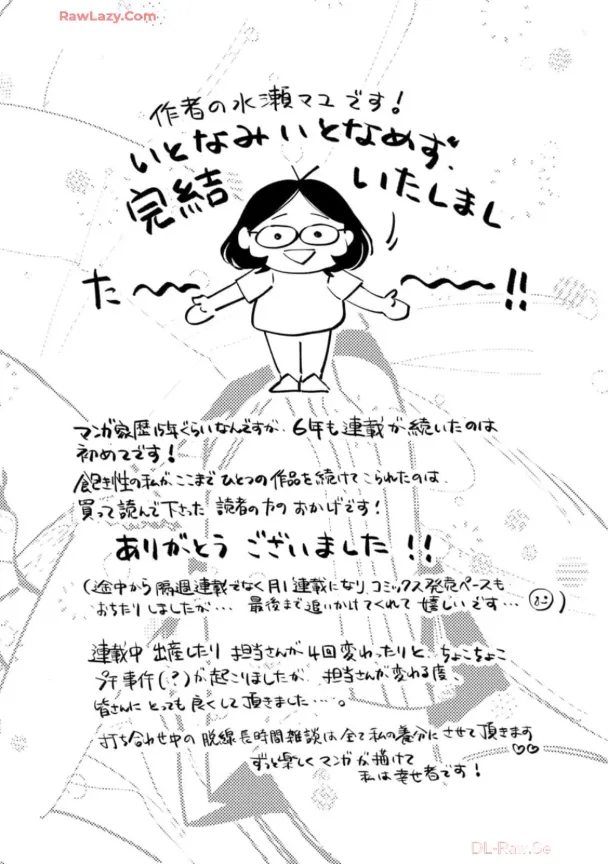 RawLazy.Com
作者の水瀬マユです！
いとなみいとなめず、
完結 いたしまし
た〜〜 〜〜!!
マンガ家歴15年ぐらいなんですが、6年も連載が続いたのは
初めてです！
飽き性の私がここまでひとつの作品を続けてこられたのは、
買って読んで下さった読者の方のおかげです！
ありがとう ございました!!
(途中から隔週連載でなく月1連載になり、コミックス発売ペースも
おちたりしましたが… 最後まで追いかけてくれて嬉しいです…)
連載中 出産したり 担当さんが4回変わったりと、ちょこちょこ
プチ事件(?)が起こりましたが、担当さんが変わる度、
皆さんにとっても良くして頂きました…。
打ち合わせ中の脱線長時間雑談は全て私の養分にさせて頂きます♡♡
ずっと楽しくマンガが描けて
私は幸せ者です！
DL-Raw.Se